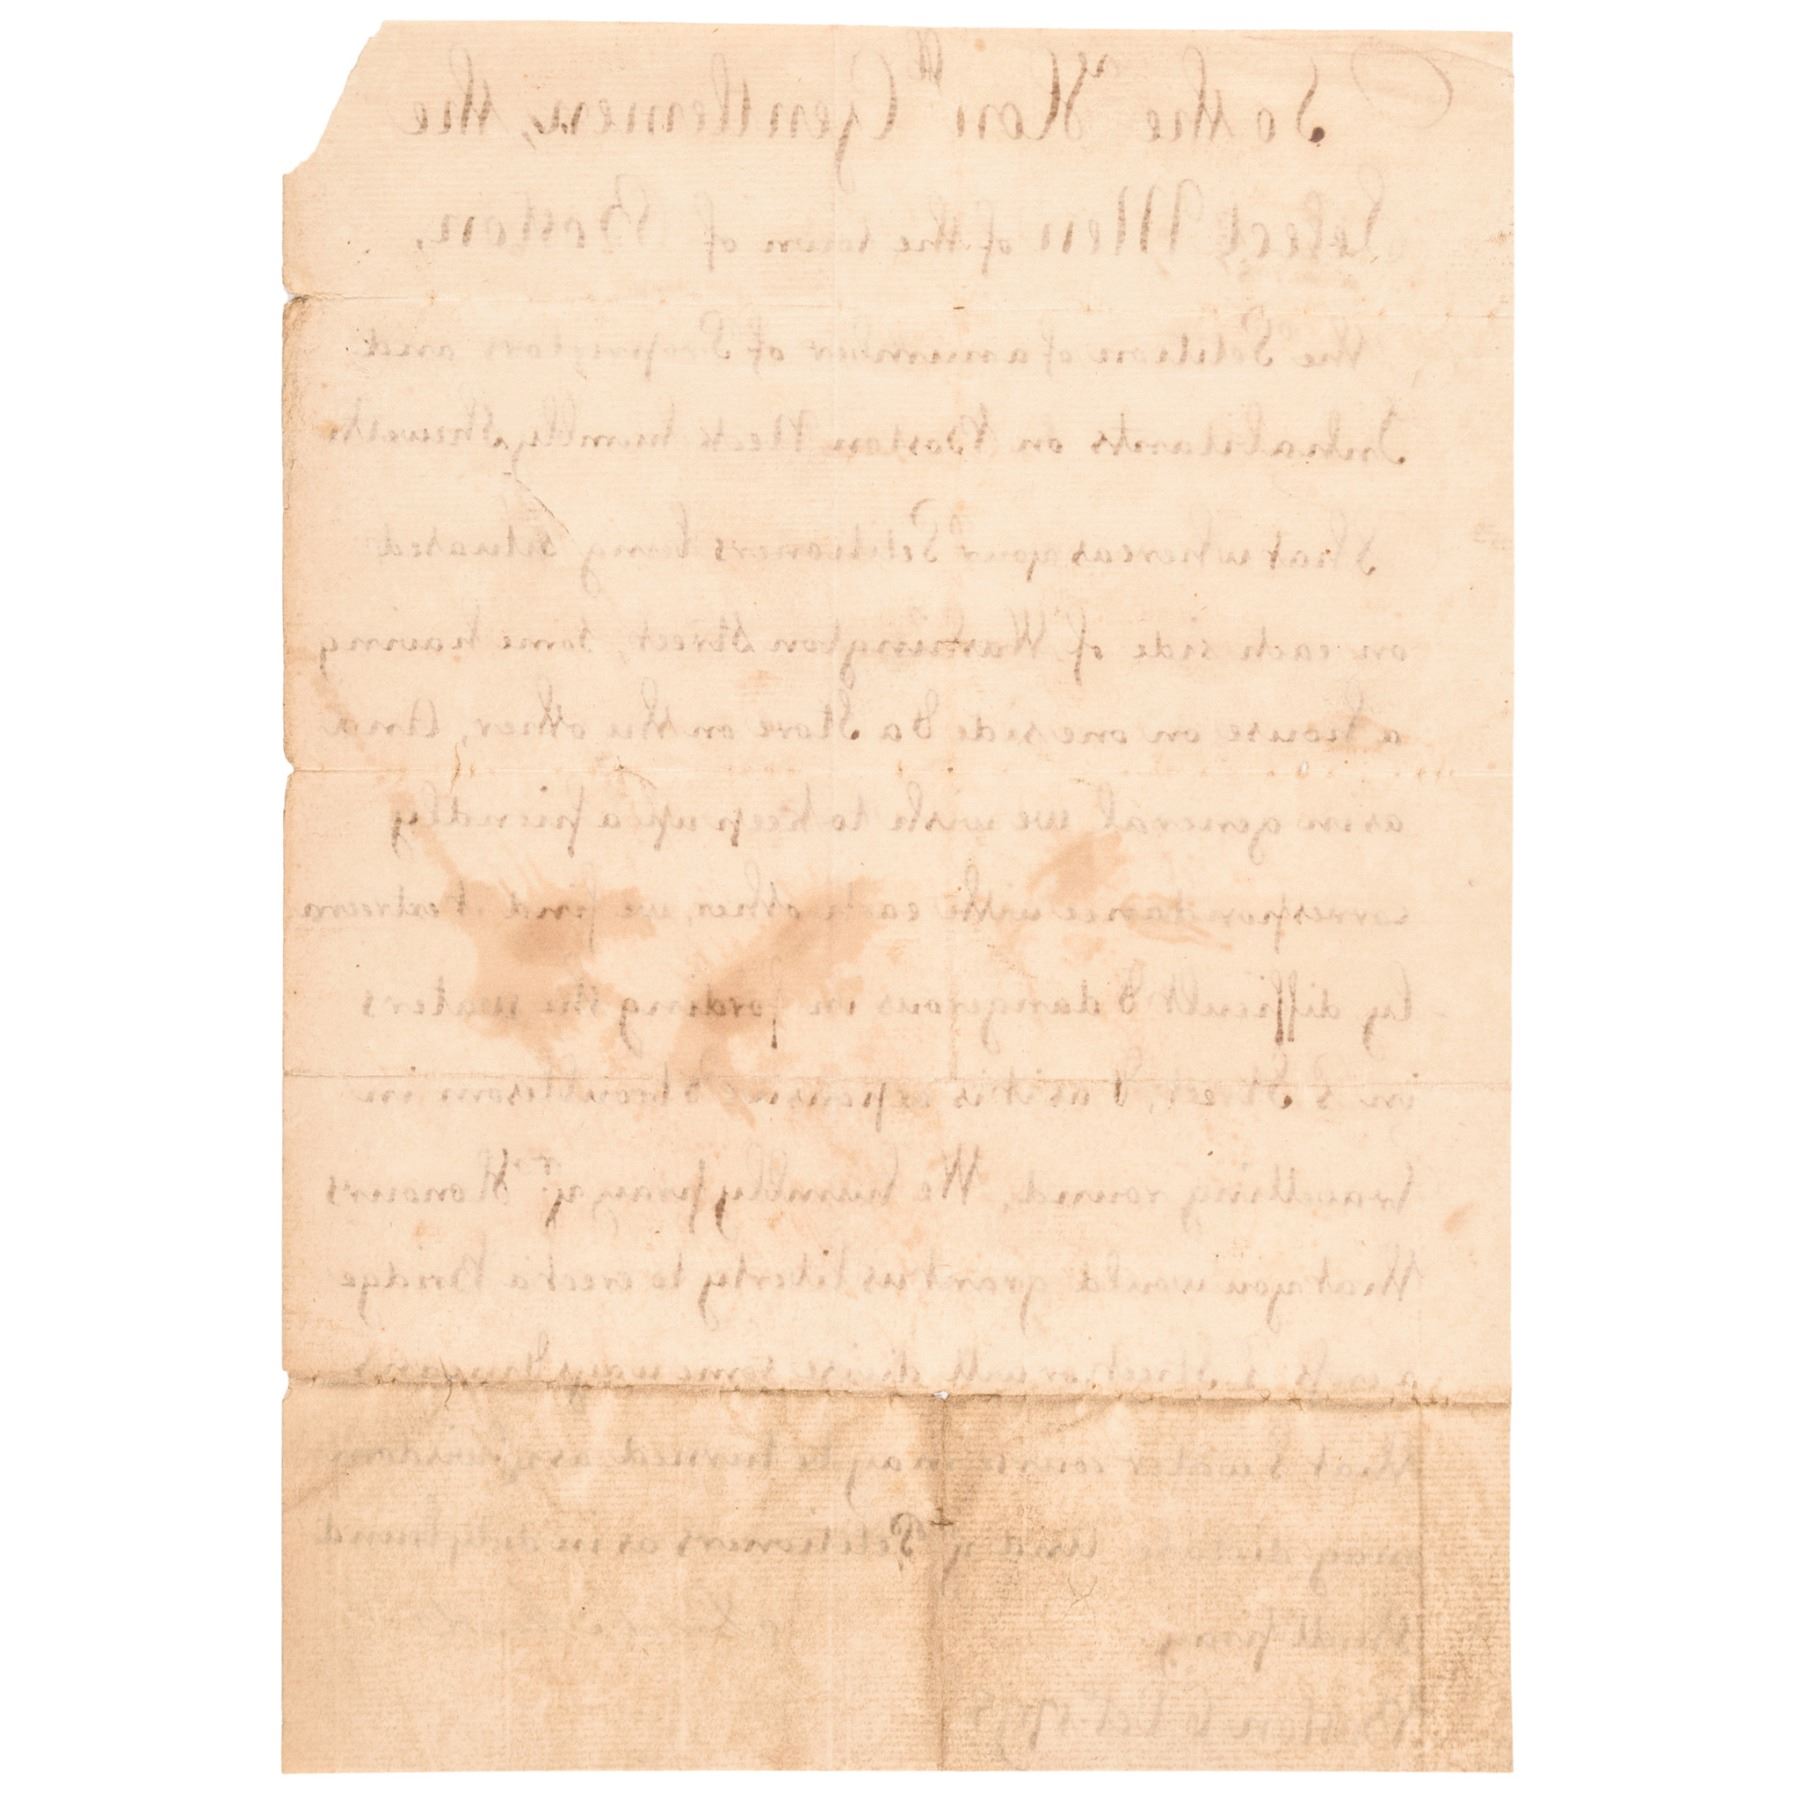 To the Hon^ble Gentlemen, the
Select Men of the town of Boston,
The Petition of a number of Proprietors and
Inhabitants on Boston Neck humbly Sheweth
That whereas your Petitioners being situated
on each side of Washington Street, some having
a house on one side & a Store on the other, And
as in general we wish to keep up a friendly
correspondance with each other, we find it extream
-ly difficult & dangerous in fording the waters
in s^d Street, & as it is expensive & troublesom in
travelling round, We humbly pray y^r Honours
that you would grant us liberty to erect a Bridge
Street or will divise some way & means
that water course may be turned as y^r wisdom
may dictate And y^r Petitioners as in duty bound
shall pray
Boston Oct